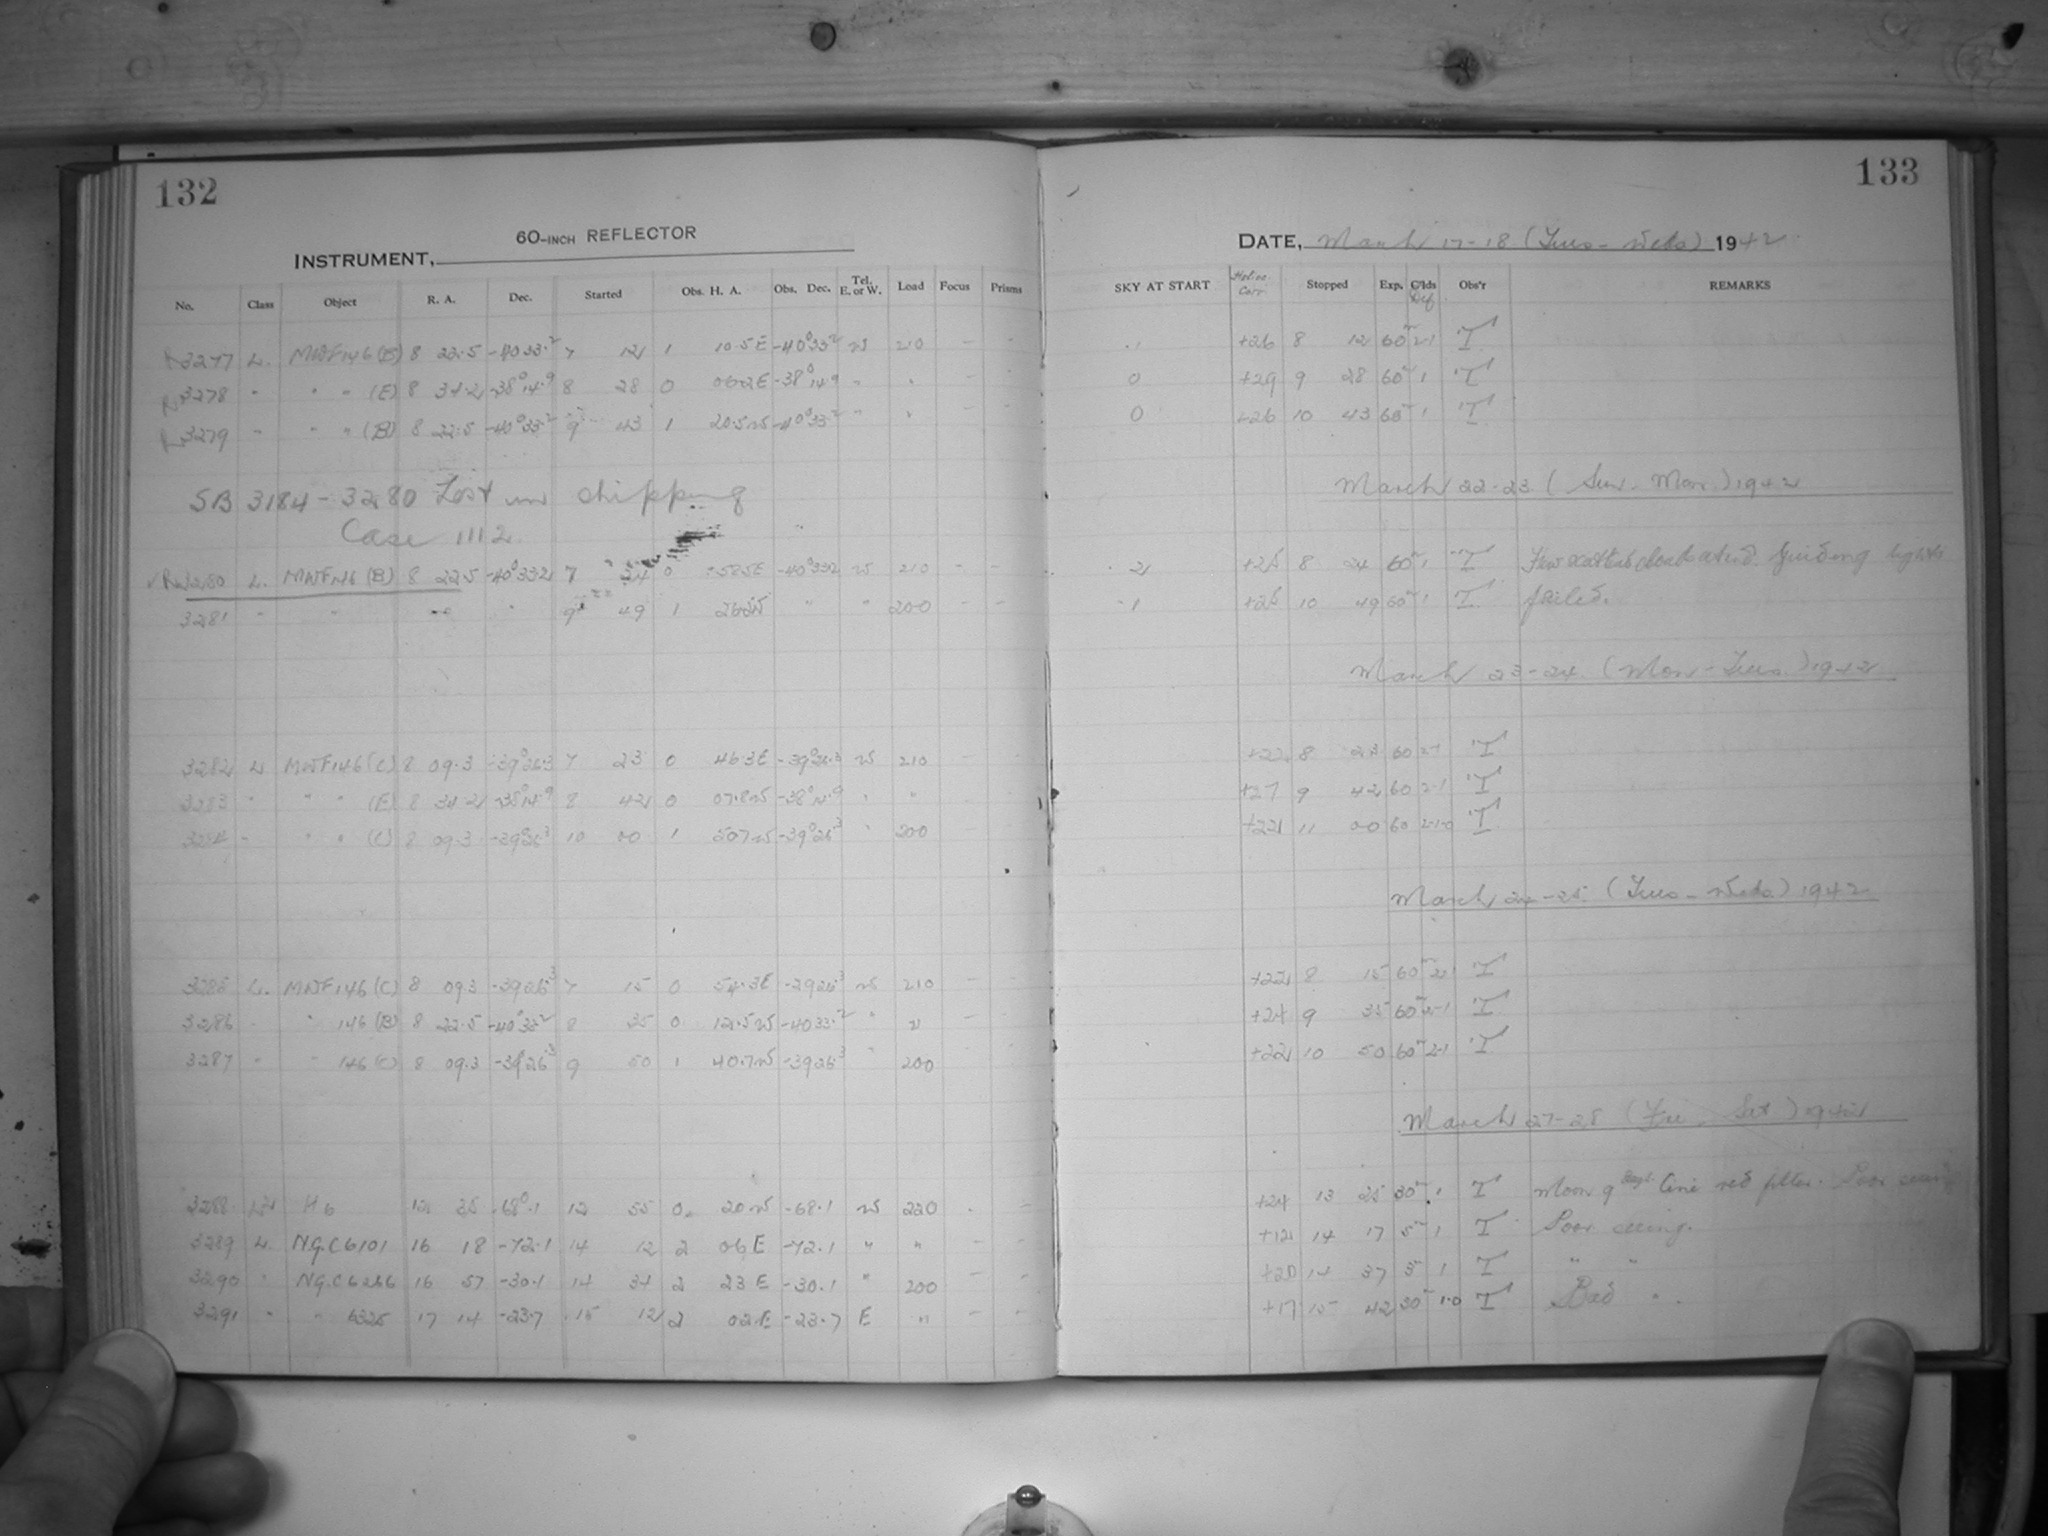 132
133
60-INCH REFLECTOR
INSTRUMENT,
DATE, March 17-18 (Tues - Weds) 1942
No. Class Object R. A. Dec. Started Obs. H. A. Obs. Dec. Tel. E. or W. Load Focus Prisms SKY AT START Stopped Exp. Clds Def Obs'r REMARKS
3277 L. MWF146 (B) 8 22.5 -40 33.2 7 12 1 10.5E -40°33.2 W 210 +26 8 12 60 2-1 T
3278 " " " (E) 8 34.2 -38°14.9 8 28 0 06.2E -38°14.9 " " 0 +29 9 28 60 1 T
3279 " " " (B) 8 22.5 -40°33.2 9 43 1 20.5W -40°33.2 " " 0 +26 10 43 60 1 T
March 22-23 (Sun - Mon.) 1942
SB 3184-3280 Lost in shipping
Case 1112
3280 L. MWF146 (B) 8 22.5 -40°33.2 7 24 0 W 210 8 24 60 1 T Few scattered guiding lights
3281 " " 9 49 1 200 10 49 60 1 T failed.
March 23-24 (Mon - Tues.) 1942
3282 L MWF146 (C) 8 09.3 -39°26.3 7 23 0 46.3E -39°26.3 W 210 +22 8 23 60 2-1 T
3283 " " " (E) 8 34.2 -38°14.9 8 42 0 07.8W -38°14.9 " " +27 9 42 60 2-1 T
3284 " " " (C) 8 09.3 -39°26.3 10 00 1 50.7W -39°26.3 " 200 +22 11 00 60 2-1-0 T
March 24-25 (Tues - Weds) 1942
3285 L. MWF146 (C) 8 09.3 -39 26.3 7 15 0 54.3E -39 26.3 W 210 +22 8 15 60 2-1 T
3286 " " 146 (B) 8 22.5 -40°33.2 8 35 0 12.5W -40 33.2 " " +24 9 35 60 2-1 T
3287 " " 146 (C) 8 09.3 -39°26.3 9 50 1 40.7W -39 26.3 " 200 +22 10 50 60 2-1 T
March 27-28 (Fri - Sat) 1942
3288 H6 12 35 -68°.1 12 55 0 20W -68.1 W 220 +24 13 25 30 1 T Moon 9 days. Cine red filter. Poor seeing
3289 L. N.G.C 6101 16 18 -72.1 14 12 2 06E -72.1 " " +12 14 17 5 1 T Poor seeing.
3290 " N.G.C 6266 16 57 -30.1 14 34 2 23E -30.1 " 200 +20 14 37 3 1 T " "
3291 " " 6325 17 14 -23.7 15 12 2 02E -23.7 E " +17 15 42 30 1-0 T Bad "